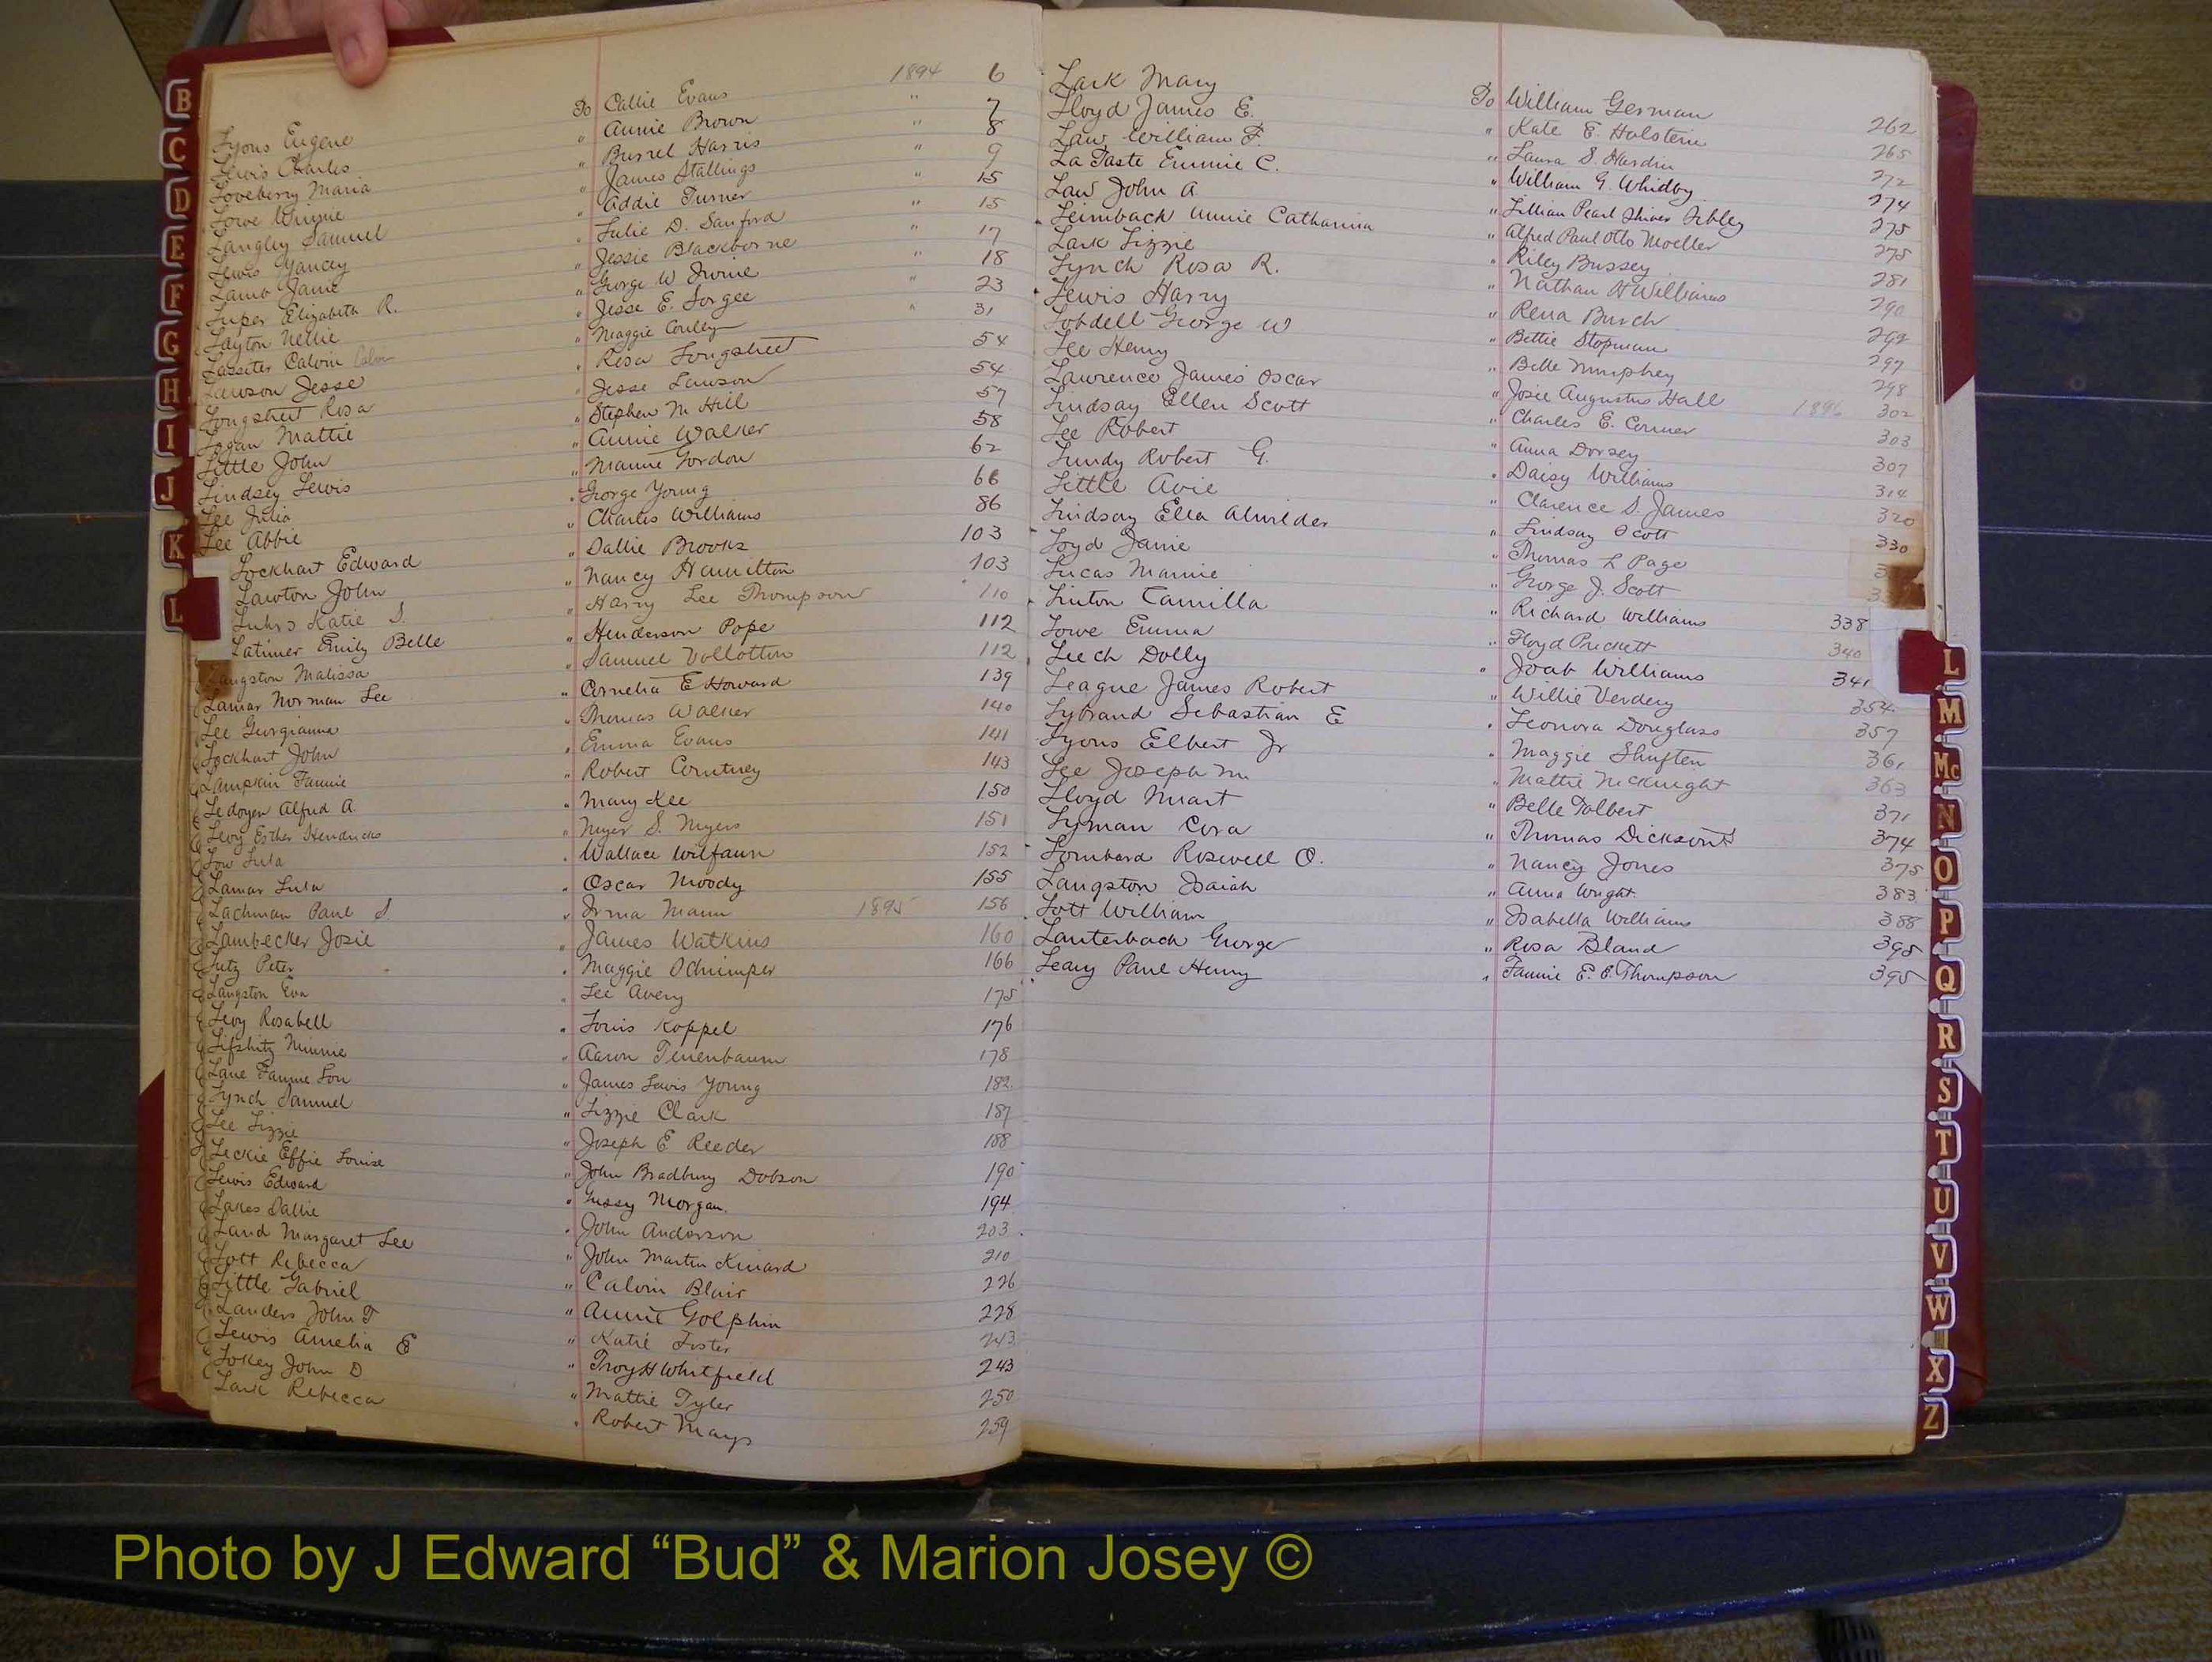 1894
Lyons Eugene To Callie Evans 6
Lewis Charles " Annie Brown " 7
Loveberry Maria " Burrel Harris " 8
Lowe Winnie " James Stallings " 9
Langley Samuel " Addie Turner " 15
Lewis Yancey " Julie D. Sanford " 15
Lamb Janie " Jessie Blackborne " 17
Luper Elizabeth R. " George W Irvine " 18
Layton Nettie " Jesse E. Sorgee " 23
Lassiter Calvin " Maggie Conley " 31
Lawson Jesse " Rosa Longstreet 54
Longstreet Rosa " Jesse Lawson 54
Logan Mattie " Stephen M Hill 57
Little John " Annie Walker 58
Lindsey Lewis " Mamie Gordon 62
Lee Julia " George Young 66
Lee Abbie " Charles Williams 86
Lockhart Edward " Dallie Brooks 103
Lawton John " Nancy Hamilton 103
Luhrs Katie S. " Harry Lee Thompson 110
Latimer Emily Belle " Henderson Pope 112
Langston Malissa " Samuel Vollotton 112
Lamar Norman Lee " Cornelia E Howard 139
Lee Georgianna " Thomas Walker 140
Lockhart John " Emma Evans 141
Lampkin Fannie " Robert Courtney 143
Ledoyen Alfred A. " Mary Kee 150
Levy Esther Hendricks " Meyer S. Myers 151
Low Lula " Wallace Wilfaun 152
Lamar Lula " Oscar Moody 155
Lachman Paul S. " Irma Mann 1895 156
Lambecker Josie " James Watkins 160
Lutz Peter " Maggie Schimper 166
Langston Eva " Lee Avery 175
Levy Rosabell " Louis Koppel 176
Lifshitz Minnie " Aaron Tenenbaum 178
Lane Fannie Lou " James Lewis Young 182
Lynch Samuel " Lizzie Clark 187
Lee Lizzie " Joseph E Reeder 188
Leckie Effie Louise " John Bradbury Dobson 190
Lewis Edward " Gussy Morgan 194
Lakes Dallie " John Anderson 203
Land Margaret Lee " John Martin Kinard 210
Lott Rebecca " Calvin Blair 226
Little Gabriel " Annie Golphin 228
Landers John F " Katie Foster 243
Lewis Amelia E " Troy H Whitfield 243
Lokey John D " Mattie Tyler 250
Lark Rebecca " Robert Mays 259
Lark Mary To William German 262
Lloyd James E. " Kate E. Holstein 265
Law William F. " Laura S. Hardin 272
La Taste Emmie C. " William G. Whidby 274
Law John A " Lillian Pearl Shives Sibley 275
Leimback Annie Catharina " Alfred Paul Otto Moeller 275
Lark Lizzie " Riley Bussey 281
Lynch Rosa R. " Nathan H Williams 290
Lewis Harry " Rena Burch 292
Lobdell George W " Bettie Stopman 297
Lee Henry " Belle Numphey 298
Lawrence James Oscar " Josie Augustus Hall 1896 302
Lindsay Ellen Scott " Charles E. Conner 303
Lee Robert " Anna Dorsey 307
Lundy Robert G. " Daisy Williams 314
Little Avie " Clarence S. James 320
Lindsay Ella Alwilder " Lindsay Scott 330
Loyd Janie " Thomas L Page
Lucas Mamie " George J. Scott
Linton Camilla " Richard Williams 338
Lowe Emma " Floyd Prickett 340
Leech Dolly " Joab Williams 341
League James Robert " Willie Verdery 354
Lybrand Sebastian E " Leonora Douglass 357
Lyons Elbert Jr " Maggie Shuften 361
Lee Joseph M. " Mattie McKnight 363
Lloyd Muart " Belle Tolbert 371
Lyman Cora " Thomas Dickson 374
Lombard Roswell O. " Nancy Jones 375
Langston Isaiah " Anna Wright 383
Lott William " Isabella Williams 388
Lauterbach George " Rosa Bland 395
Leary Paul Henry " Fannie E. E. Thompson 395
B
C
D
E
F
G
H
I
J
K
L
L
M
Mc
N
O
P
Q
R
S
T
U
V
W
X
Z
Photo by J Edward “Bud” & Marion Josey ©